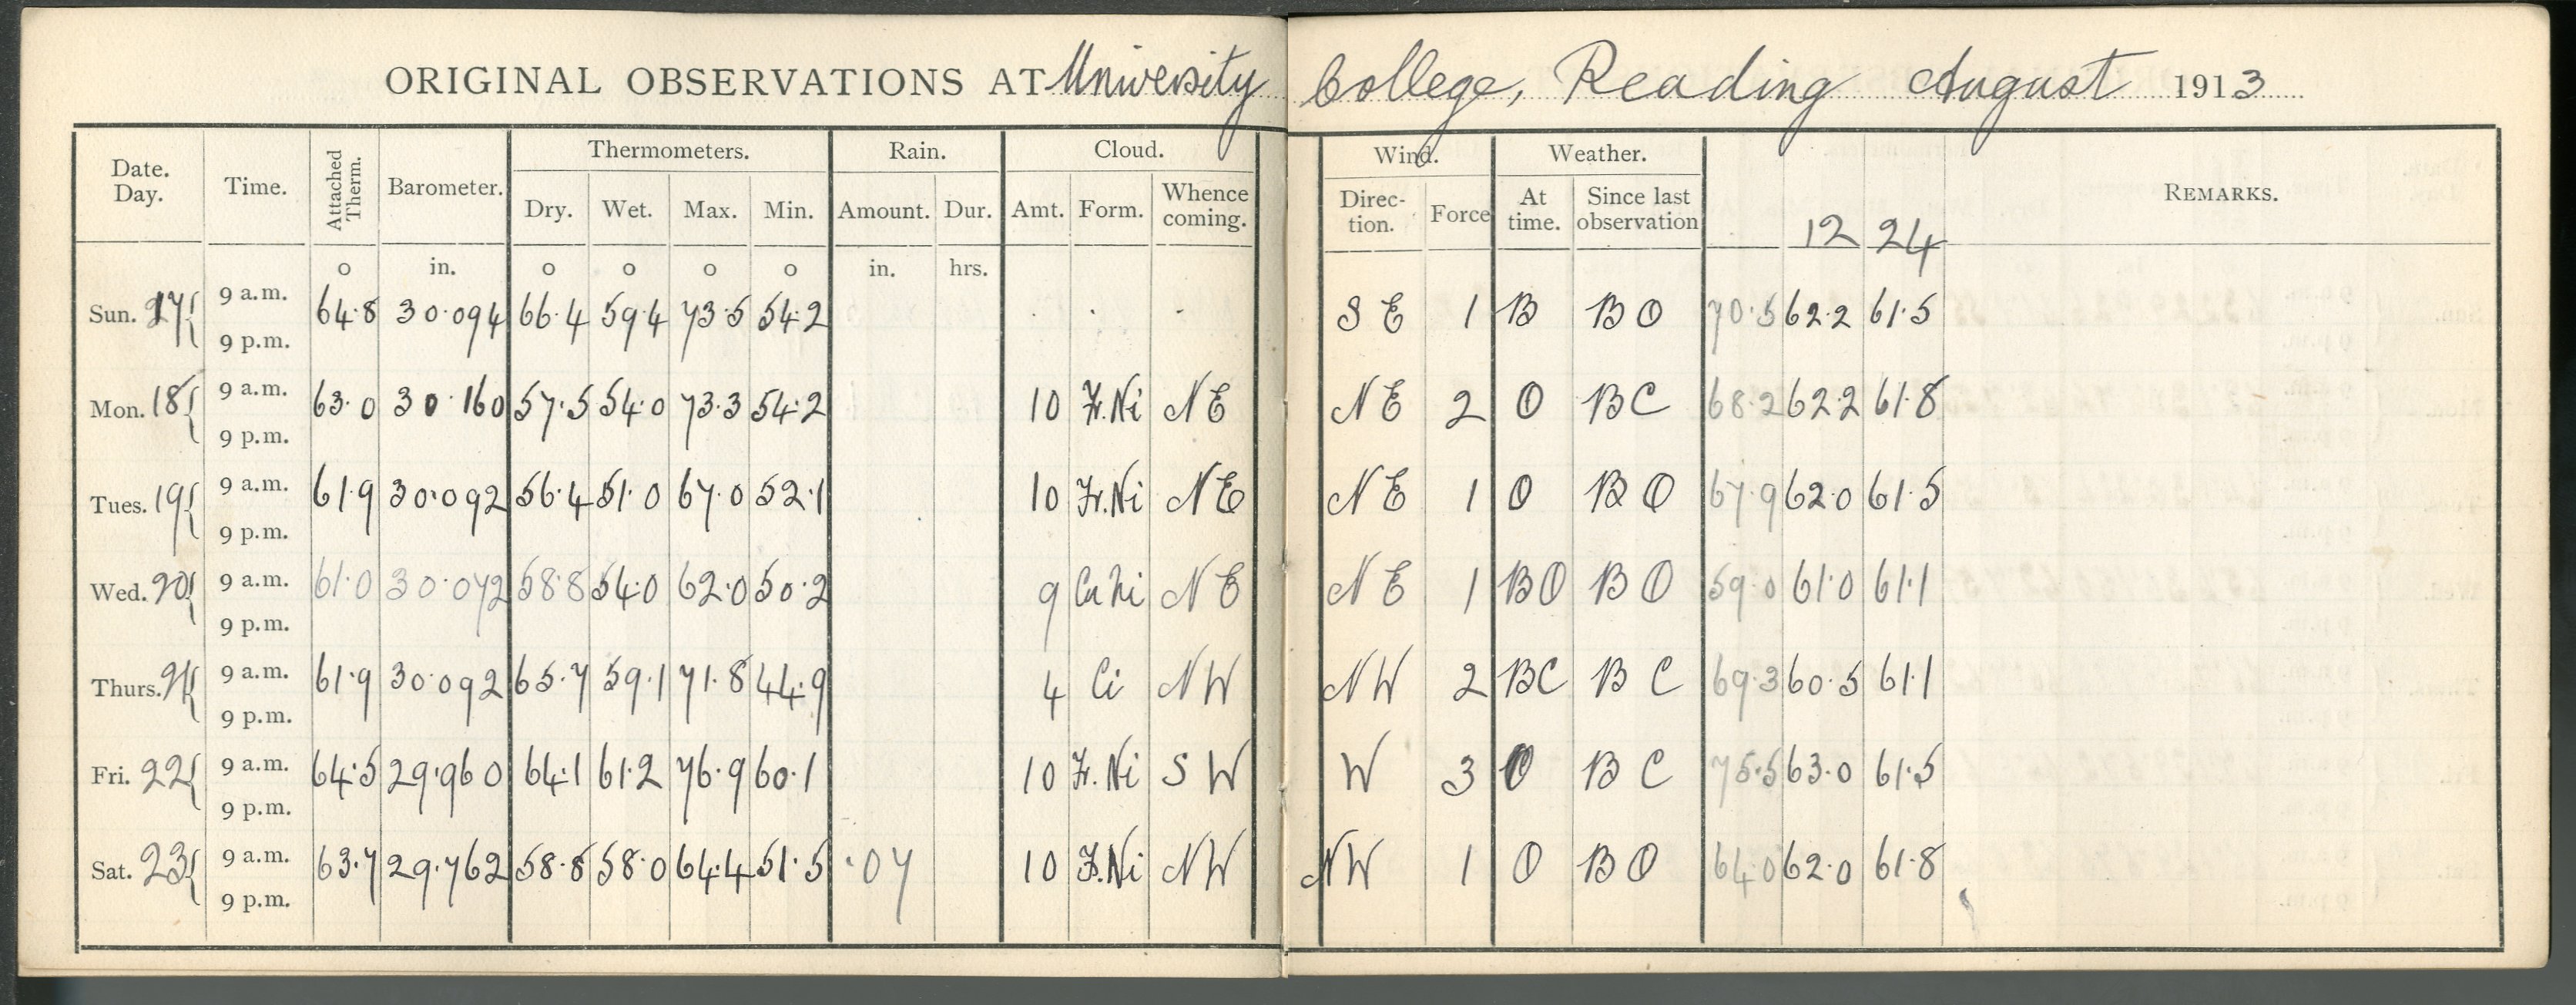 ORIGINAL OBSERVATIONS AT University College, Reading August 1913
Date. Day. Time. Attached Therm. Barometer. Thermometers. Rain. Cloud. Wind. Weather. REMARKS.
Dry. Wet. Max. Min. Amount. Dur. Amt. Form. Whence coming. Direc-tion. Force At time. Since last observation 12 24
o in. o o o o in. hrs.
Sun. 17 9 a.m. 64.8 30.094 66.4 59.4 73.5 54.2 . . . S E 1 B B O 70.5 62.2 61.5
9 p.m.
Mon. 18 9 a.m. 63.0 30.160 57.5 54.0 73.3 54.2 10 Fr.Ni N E N E 2 O B C 68.2 62.2 61.8
9 p.m.
Tues. 19 9 a.m. 61.9 30.092 56.4 51.0 67.0 52.1 10 Fr.Ni N E N E 1 O B O 67.9 62.0 61.5
9 p.m.
Wed. 20 9 a.m. 61.0 30.072 58.8 54.0 62.0 50.2 9 Cu Ni N E N E 1 B O B O 59.0 61.0 61.1
9 p.m.
Thurs. 21 9 a.m. 61.9 30.092 65.7 59.1 71.8 44.9 4 Ci N W N W 2 BC B C 69.3 60.5 61.1
9 p.m.
Fri. 22 9 a.m. 64.5 29.960 64.1 61.2 76.9 60.1 10 Fr.Ni S W W 3 O B C 75.5 63.0 61.5
9 p.m.
Sat. 23 9 a.m. 63.7 29.762 58.8 58.0 64.4 51.5 .07 10 Fr.Ni N W N W 1 O B O 64.0 62.0 61.8
9 p.m.